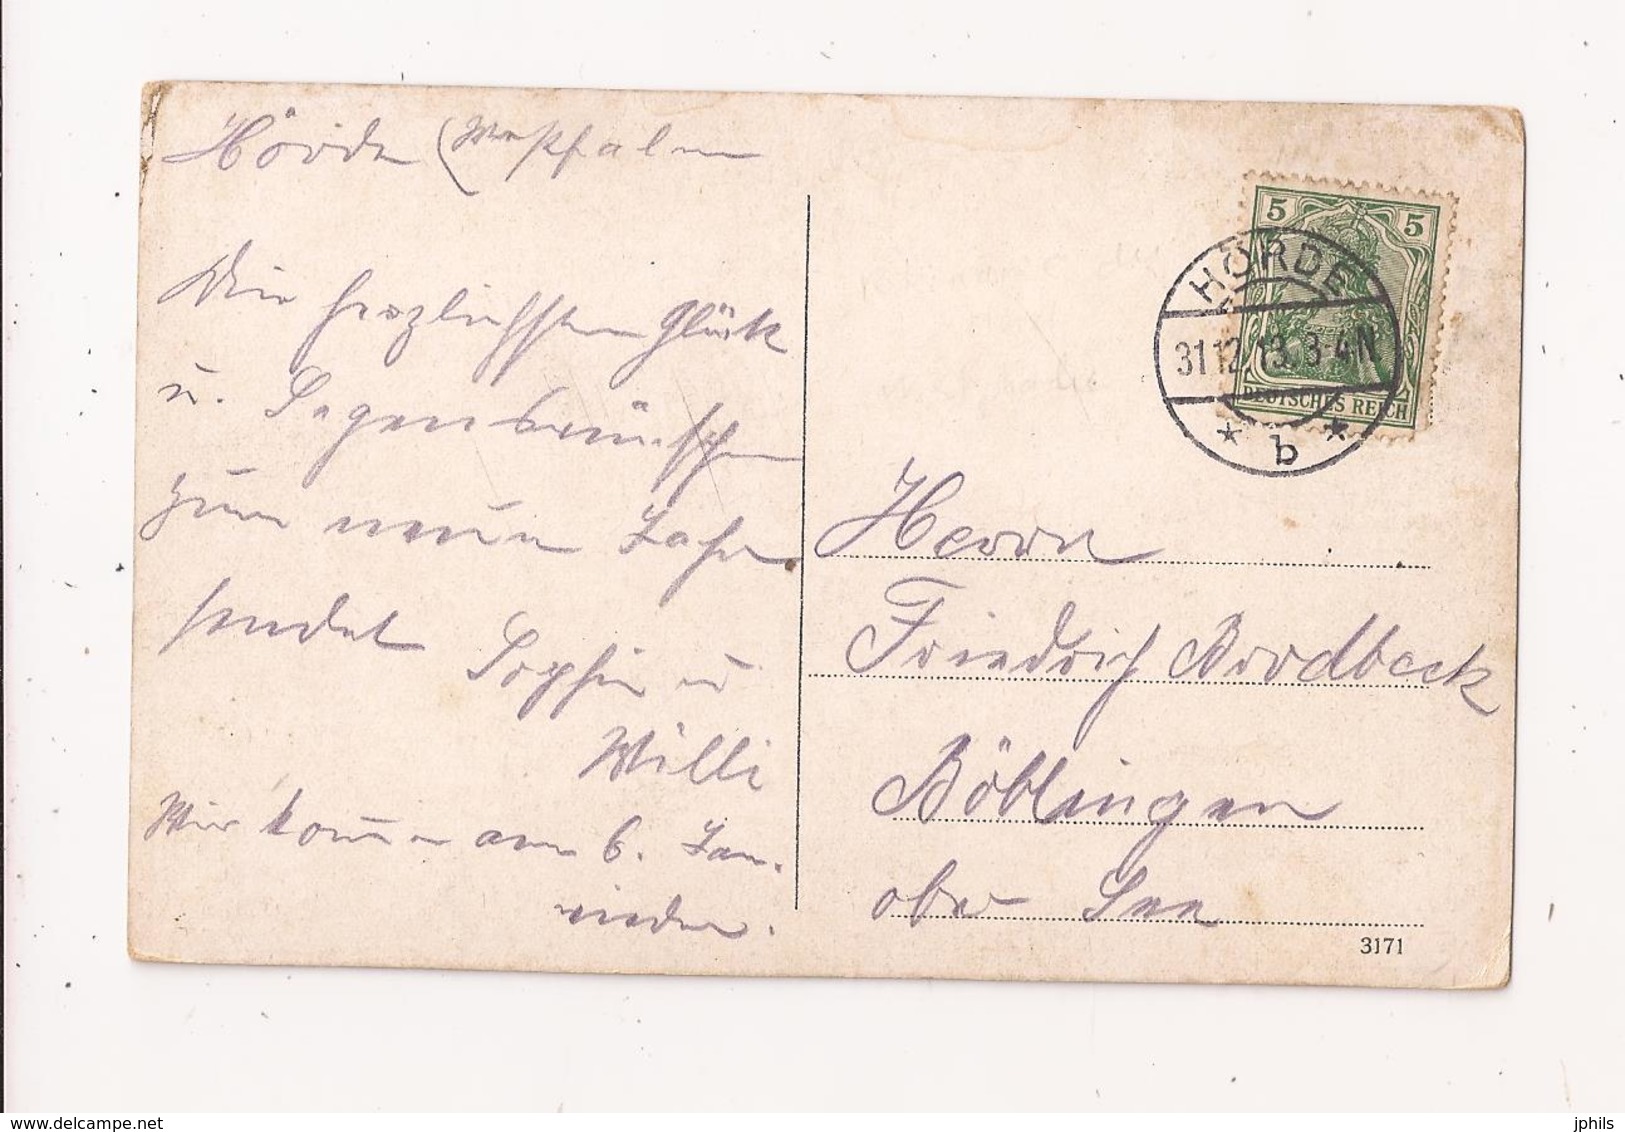 Hörde (Westfalen
Die herzlichsten Glück
u. Segenswünschen
zum neuen Jahr
sendet Sophie u
Willi
Wir kommen am 6. Jan.
wieder.
5 5
HÖRDE
31.12.13. 3-4N
DEUTSCHES REICH
* b *
Herrn
Friedrich Brodbeck
Böblingen
ober See
3171
delcampe.net
jphils